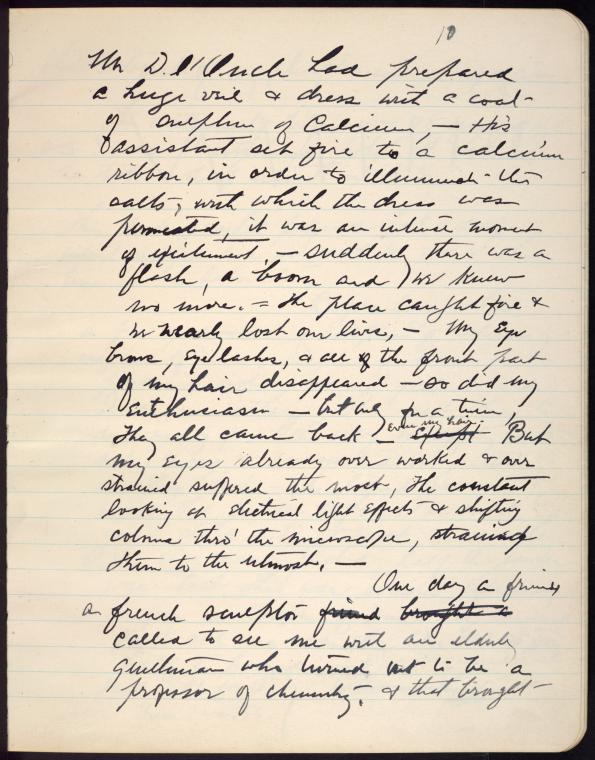 10
Mr D. l'Oncle had prepared
a huge veil & dress with a coat-
of sulphur of Calcium, — His
assistant set fire to a calcium
ribbon, in order to illuminate the
salts, with which the dress was
permeated, it was an intense moment
of excitement, — suddenly there was a
flash, a boom and we knew
no more. = The place caught fire &
we nearly lost our lives, — My Eye
brows, Eye lashes, & all the front part
of my hair disappeared — so did my
Enthusiasm — but only for a time,
They all came back — even my hair. But
my Eyes already over worked & over
strained suffered the most, The constant
looking at electrical light effects & shifting
colours thro' the microscope, strained
them to the utmost. —
One day a friend
a french sculptor friend brought a
called to see me with an elderly
gentleman who turned out to be a
professor of chemistry, & that brought